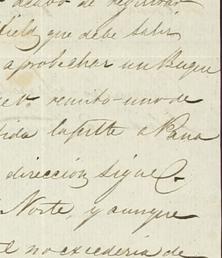 acabo de
que debe salir
a aprobechar un Buque
remito uno de
Lafitte a Pana
direccion sigue
Norte, y aunque
no excederia de